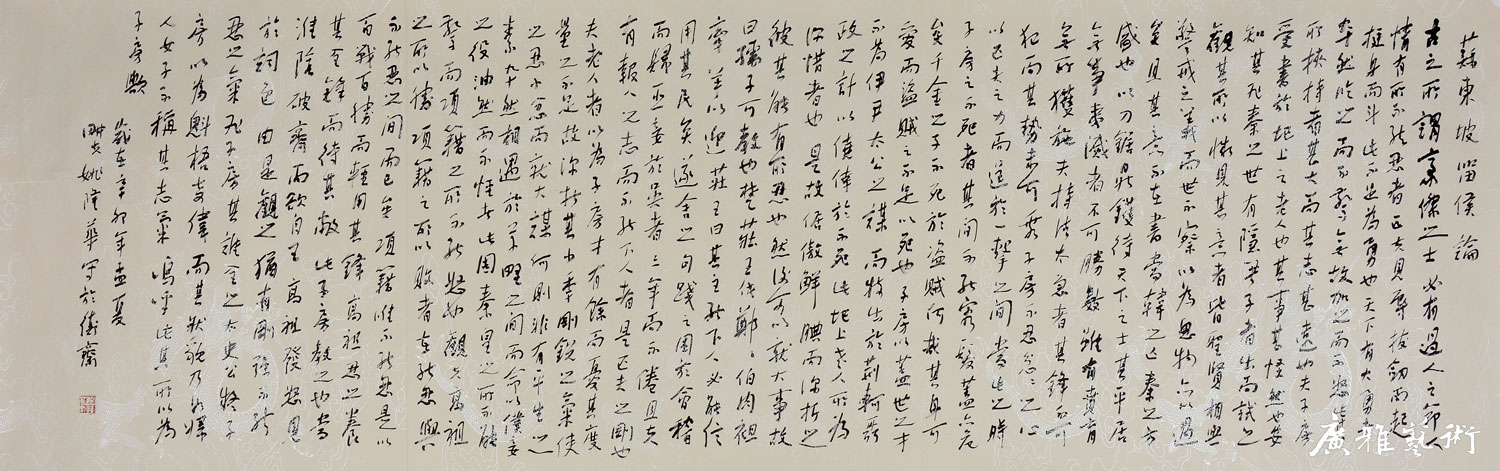 蘇東坡留侯論
古之所謂豪傑之士必有過人之節人
情有所不能忍者匹夫見辱拔劍而起
挺身而鬥此不足為勇也天下有大勇者
卒然臨之而不驚無故加之而不怒此其
所挾持者甚大而其志甚遠也夫子房
受書於圯上之老人也其事甚怪然亦安
知其非秦之世有隱君子者出而試之
觀其所以微見其意者皆聖賢相與
警戒之義而世不察以為鬼物亦以過
矣且其意不在書當韓之亡秦之方
盛也以刀鋸鼎鑊待天下之士其平居
無事夷滅者不可勝數雖有賁育
無所獲施夫持法太急者其鋒不可
犯而其勢未可乘子房不忍忿忿之心
以匹夫之力而逞於一擊之間當此之時
子房之不死者其間不能容髮蓋亦危
矣千金之子不死於盜賊何哉其身可
愛而盜賊之不足以死也子房以蓋世之才
不為伊尹太公之謀而特出於荊軻聶
政之計以僥倖於不死此圯上老人所為
深惜者也是故倨傲鮮腆而深折之
彼其能有所忍也然後可以就大事故
曰孺子可教也楚莊王伐鄭鄭伯肉袒
牽羊以迎莊王曰其主能下人必能信
用其民矣遂舍之句踐之困於會稽
而歸臣妾於吳者三年而不倦且夫
有報人之志而不能下人者是匹夫之剛也
夫老人者以為子房才有餘而憂其度
量之不足故深折其少年剛銳之氣使
之忍小忿而就大謀何則非有平生之
素卒然相遇於草野之間而命以僕妾
之役油然而不怪者此固秦皇之所不能
驚而項籍之所不能怒也觀夫高祖
之所以勝項籍之所以敗者在能忍與
不能忍之間而已矣項籍惟不能忍是以
百戰百勝而輕用其鋒高祖忍之養
其全鋒而待其敝此子房教之也當
淮陰破齊而欲自王高祖發怒見
於詞色由是觀之猶有剛強不能
忍之氣非子房其誰全之太史公疑子
房以為魁梧奇偉而其狀貌乃如婦
人女子不稱其志氣嗚呼此其所以為
子房歟
歲在辛卯年孟夏
姚隆華寫於齋
廣雅藝術